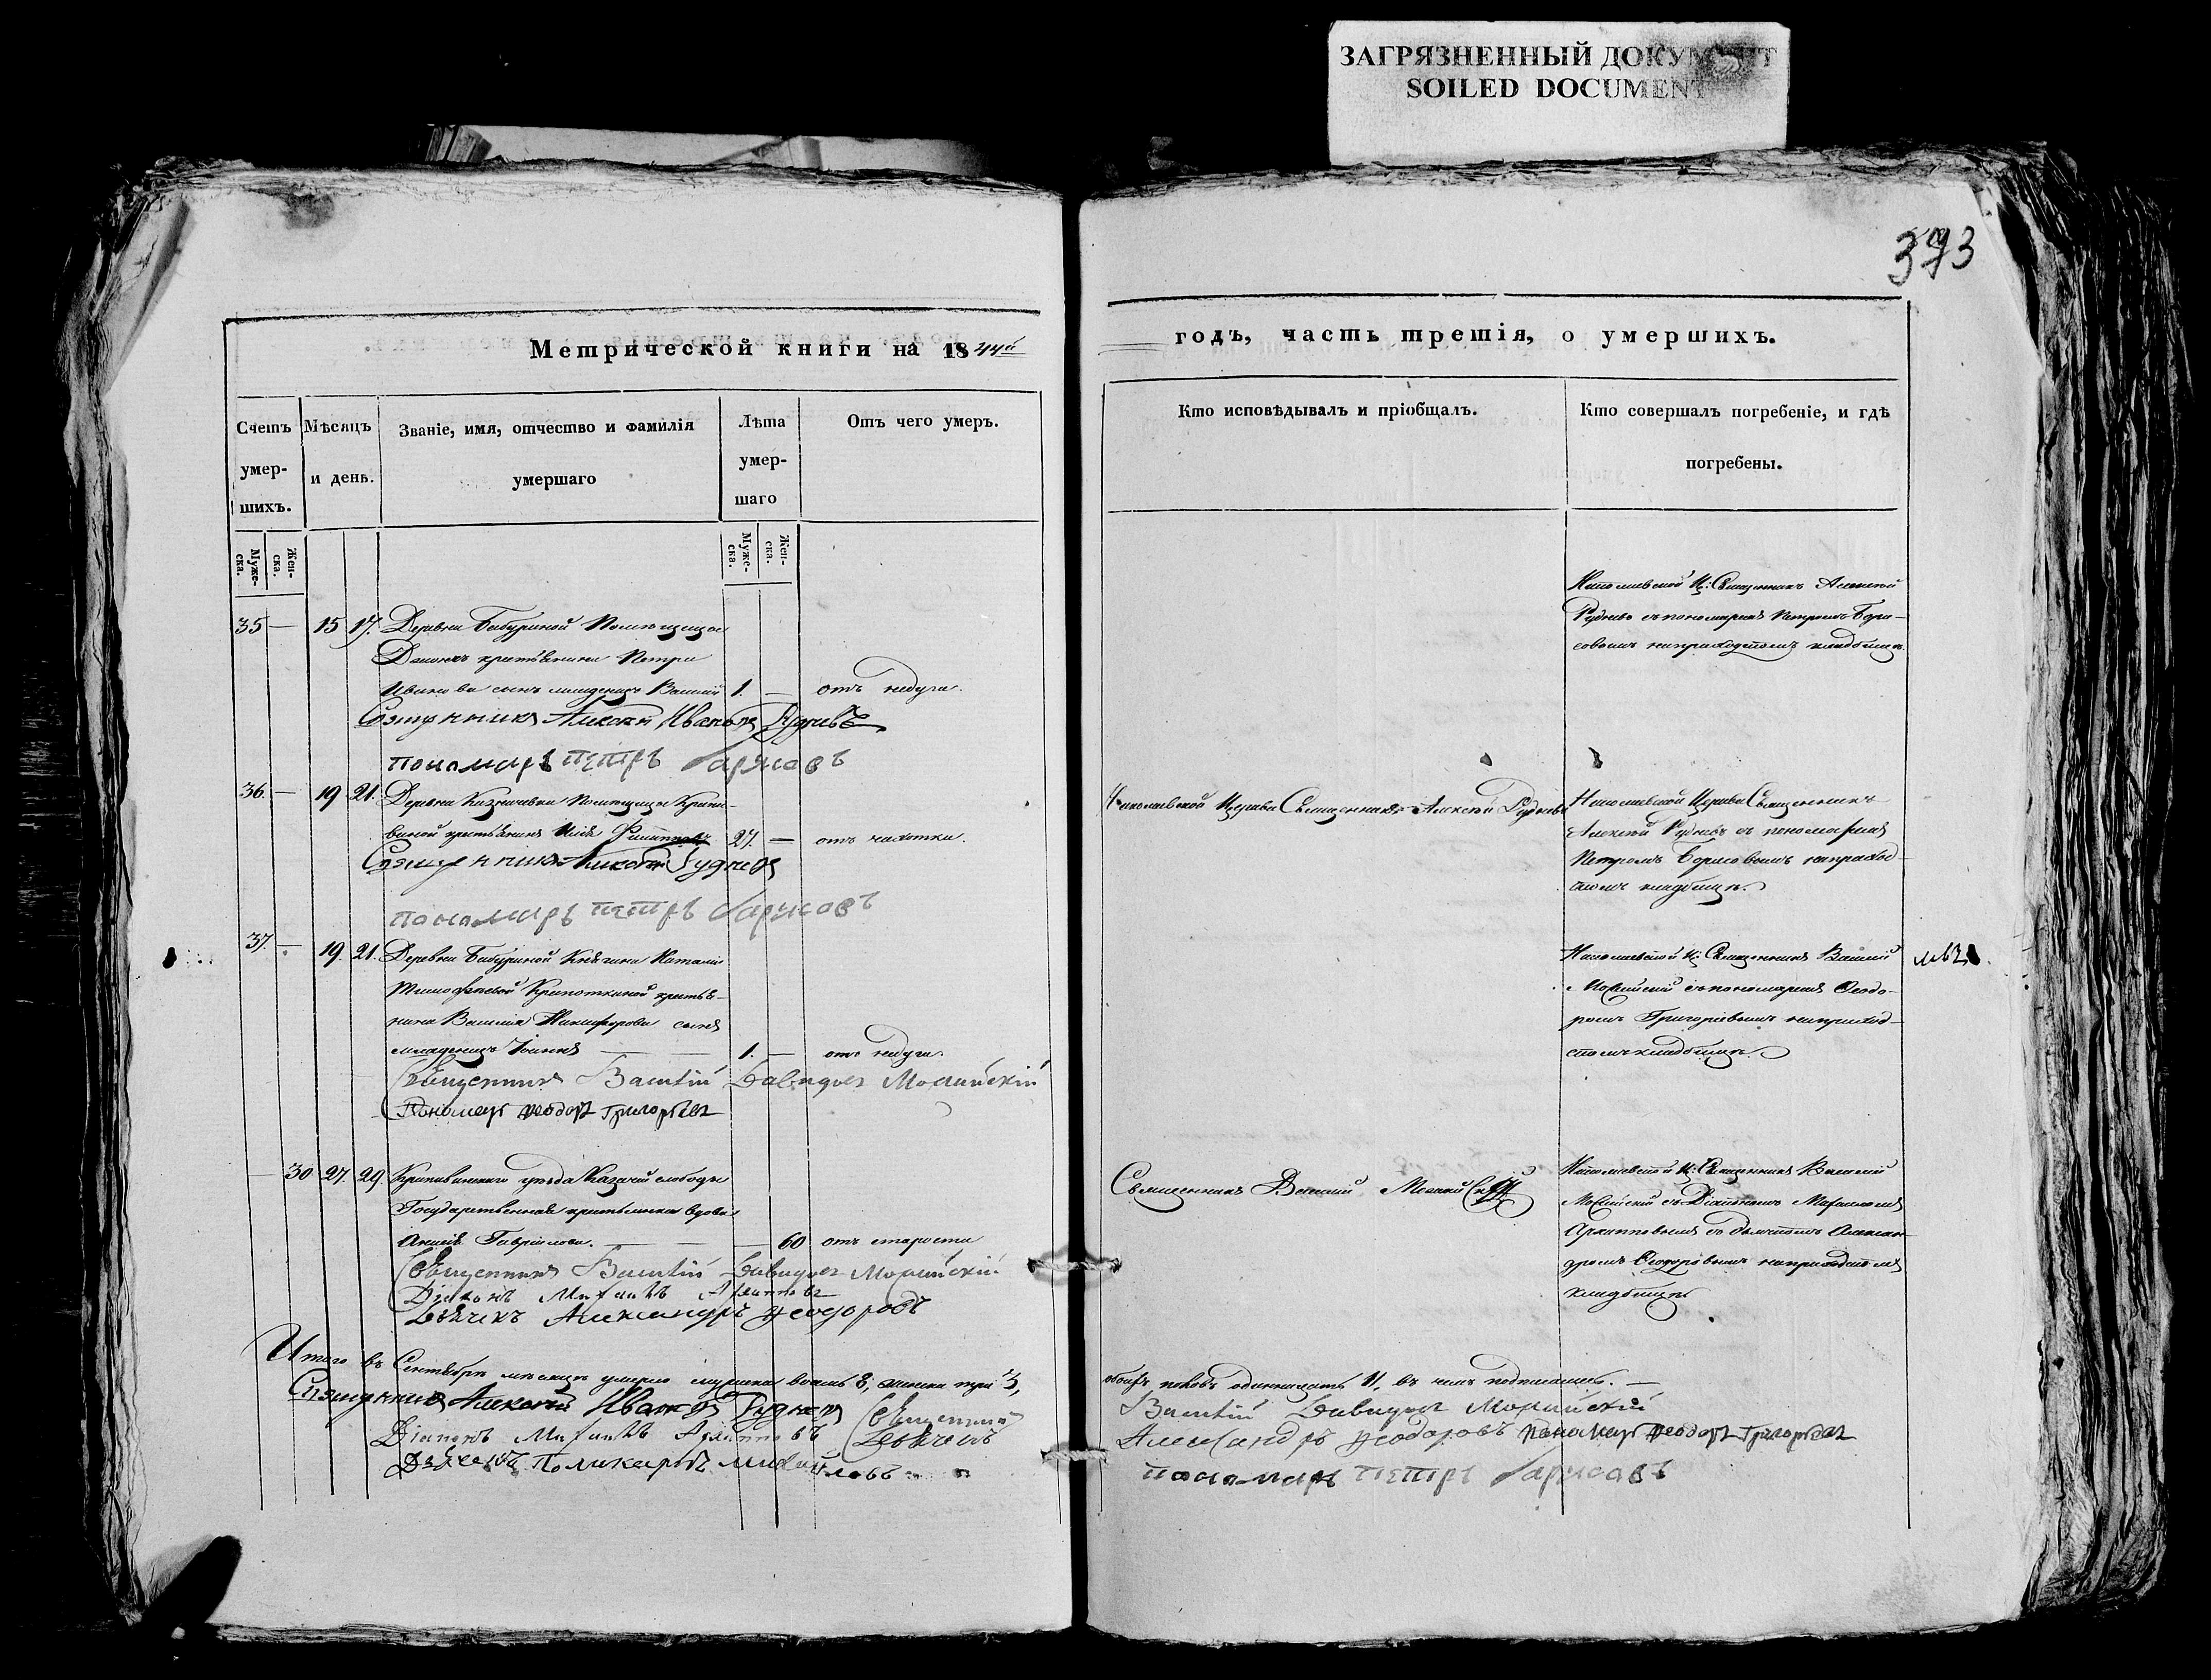 ЗАГРЯЗНЕННЫЙ ДОКУМЕНТ
SOILED DOCUMENT
373
Метрической книги на 1844й
Счетъ умер- шихъ.
Мѣсяцъ и день.
Званіе, имя, отчество и фамилія умершаго
Лѣта умер- шаго
Отъ чего умеръ.
Муже- ска.
Жен- ска.
Муже- ска.
Жен- ска.
35 — 15 17. Деревни Бабуриной Помѣщицы
крестьянина Петра
Иванова сынъ младенецъ Василій 1. — отъ недуга.
Священникъ Алексей Ивановъ Рудневъ
пономарь петръ Барисовъ
36. — 19 21. Деревни Казначевки Помѣщицы Крапи-
виной крестьянинъ Илія Филипповъ 27. — отъ чахотки.
Священникъ Алексей Рудневъ
пономарь петръ Барисовъ
37. — 19. 21. Деревни Бабуриной Княгини Наталіи
Тимофеевой Крапоткиной крестья-
нина Василія Никифорова сынъ
младенецъ Іоаннъ — — 1. — отъ недуга.
Священникъ Василій Давидовъ Мосинскій
Пономарь Феодоръ Григорьевъ
— 30 27. 29. Крапивенскаго уѣзда Казачей слободы
Государственная крестьянка вдова
Гавріилова. — — — 60 отъ старости
Священникъ Василій Давидовъ
Діаконъ Михаилъ Архиповъ
Дьячекъ Александръ Феодоровъ
Итого въ Сентябрѣ мѣсяцѣ умерло мужска восемь 8, женска три 3,
Священникъ Алексей Ивановъ Рудневъ Священникъ
Діаконъ Михаилъ Архиповъ Дьячекъ
Дьячекъ Поликарпъ Михайловъ
годъ, часть третія, о умершихъ.
Кто исповѣдывалъ и пріобщалъ.
Кто совершалъ погребеніе, и гдѣ погребены.
Николаевской Ц: Священникъ Алексѣй
Рудневъ съ пономаремъ Петромъ Бори-
совымъ на приходскомъ кладбищѣ.
Николаевской Церкви Священникъ Алексѣй Рудневъ
Николаевской Церкви Священникъ
Алексѣй Рудневъ съ пономаремъ
Петромъ Борисовымъ на приход-
скомъ кладбищѣ.
Николаевской Ц: Священникъ Василій
съ пономаремъ Феодо-
ромъ Григорьевымъ на приход-
скомъ кладбищѣ.
Священникъ Василій
Николаевской Ц: Священникъ Василій
съ Діакономъ Михаиломъ
Архиповымъ съ дьячкомъ Алексан-
дромъ Феодоровымъ на приходскомъ
кладбищѣ
обоихъ половъ одиннадцать 11, въ чемъ подписались. —
Василій Давидовъ
Александръ Феодоровъ Пономарь Феодоръ Григорьевъ
пономарь петръ Барисовъ